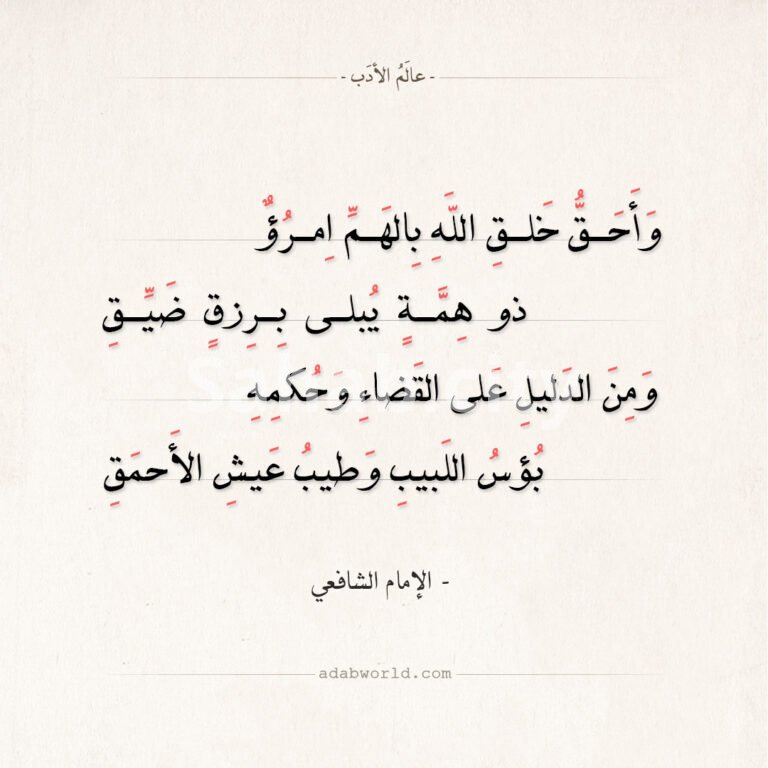 - عالَمُ الأدَب -
وَأَحَـقُّ خَلـقِ اللَهِ بِالهَـمِّ اِمـرُؤٌ
ذو هِمَّـةٍ يُبلـى بِـرِزقٍ ضَيِّـقِ
وَمِنَ الدَليلِ عَلى القَضاءِ وَحُكمِهِ
بُؤسُ اللَبيبِ وَطيبُ عَيشِ الأَحمَقِ
- الإمام الشافعي
adabworld.com